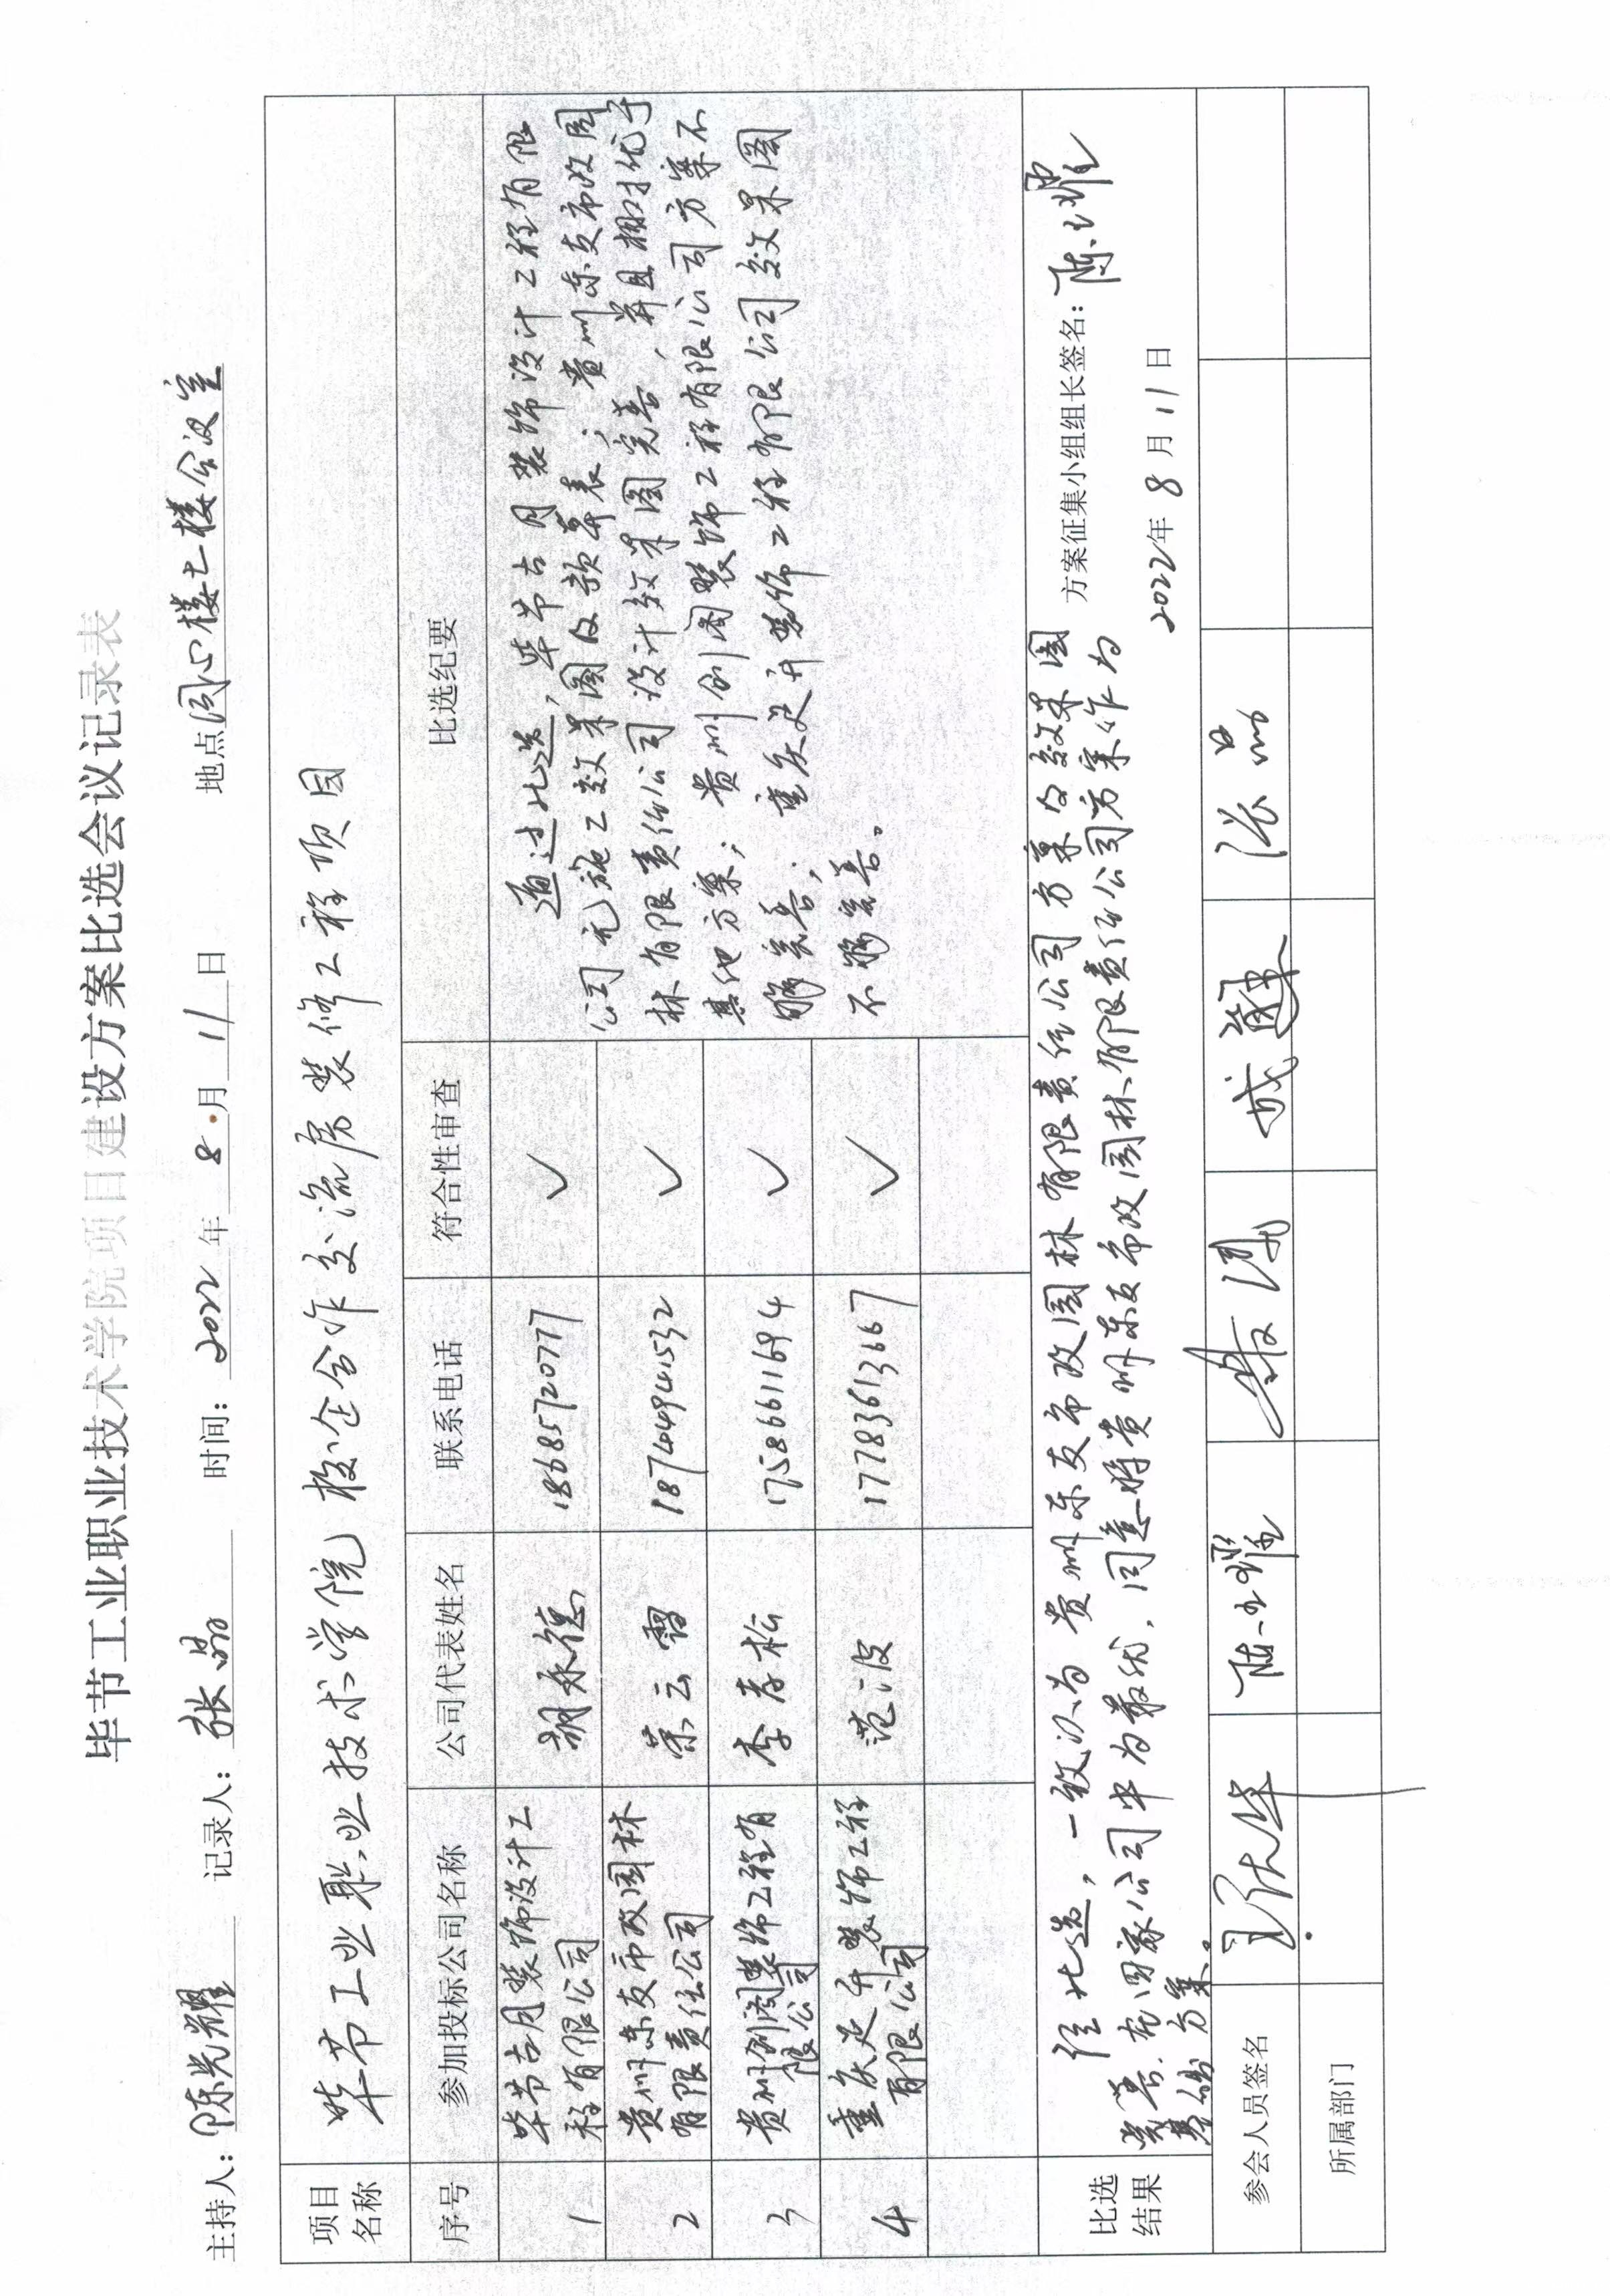 毕节工业职业技术学院项目建设方案比选会议记录表
主持人：陈光耀 记录人：张晶 时间：2022年8月11日 地点同心楼七楼会议室
项目名称 毕节工业职业技术学院校企合作交流房装修工程项目
序号 参加投标公司名称 公司代表姓名 联系电话 符合性审查 比选纪要
1 毕节古月装饰设计工程有限公司 胡永德 18685720777 ✓
2 贵州东友市政园林有限责任公司 荣云霄 18744941532 ✓
3 贵州创阁装饰工程有限公司 李孝松 17586611694 ✓
4 重庆足升装饰工程有限公司 范波 17783613667 ✓
通过比选，毕节古月装饰设计工程有限
公司无施工效果图及预算表；贵州东友市政园
林有限责任公司设计效果图完善，并且棚才优于
其他方案；贵州创阁装饰工程有限公司方案不
够完善；重庆足升装饰工程有限公司效果图
不够完善。
比选结果
经比选，一致认为贵州东友市政园林有限责任公司方案的效果图
完善，在四家公司中为最优，同意将贵州东友市政园林有限责任公司方案作为
基础方案。
方案征集小组组长签名：陈光耀
2022年8月11日
参会人员签名 陈光耀 张晶
所属部门